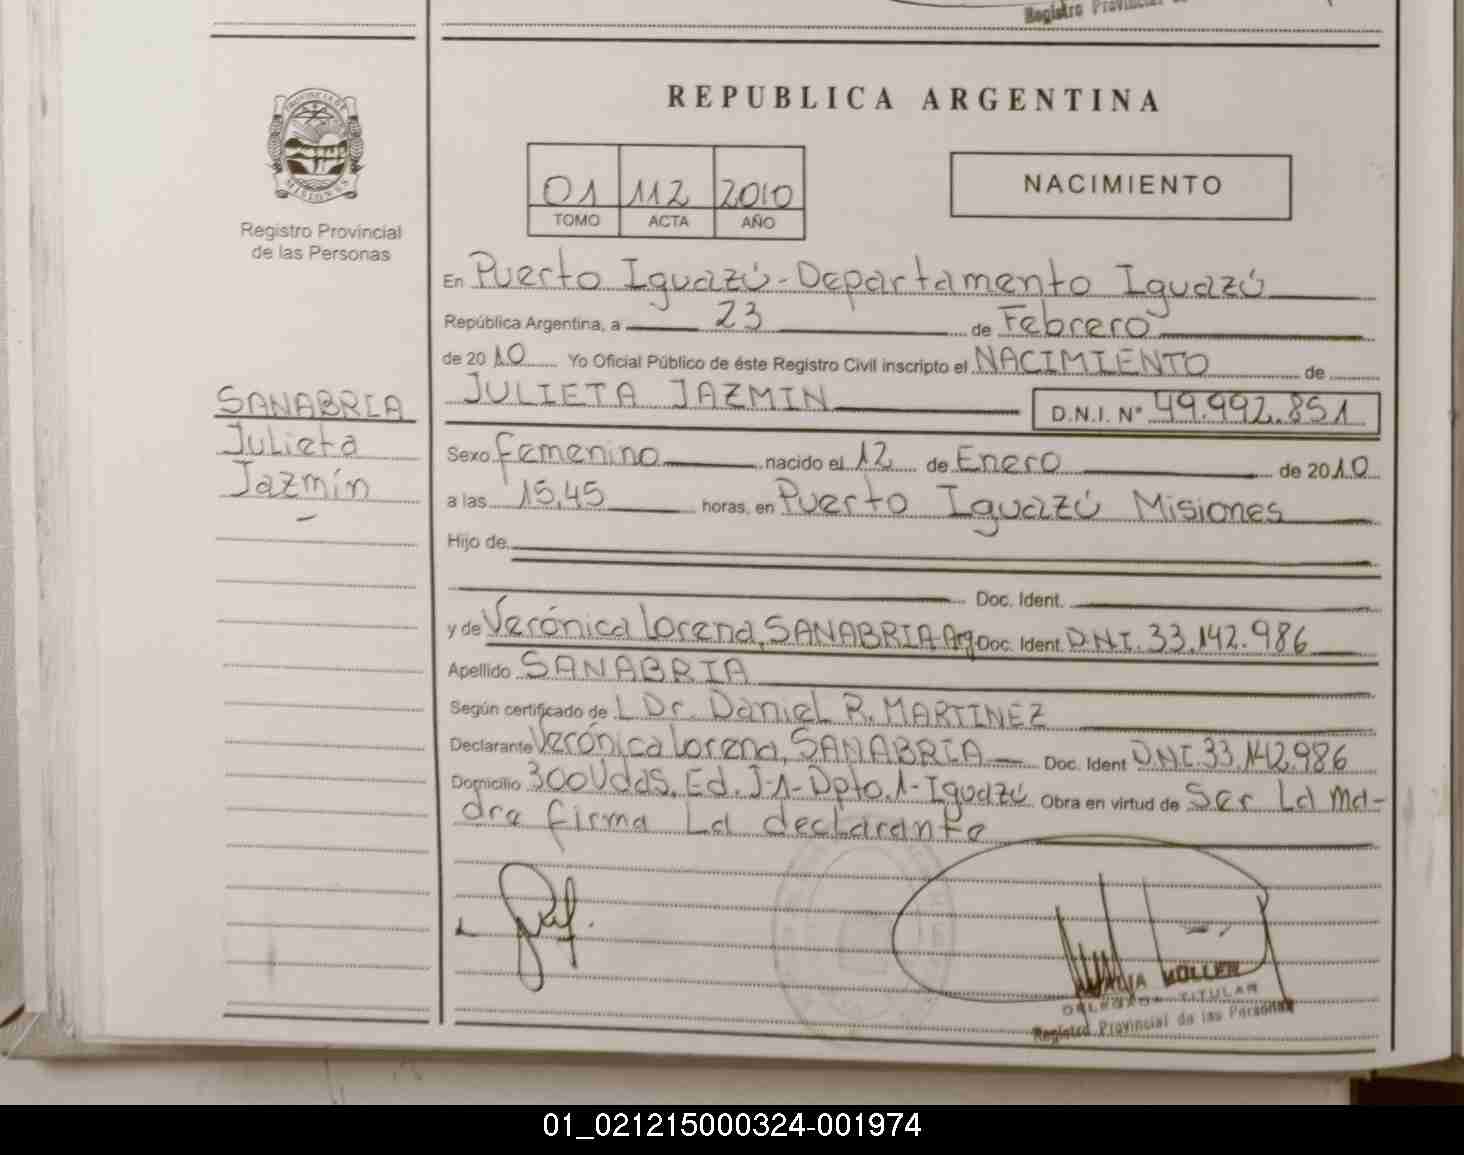 Registro Provincial
REPUBLICA ARGENTINA
PROVINCIA DE
MISIONES
Registro Provincial
de las Personas
01 112 2010
TOMO ACTA AÑO
NACIMIENTO
En Puerto Iguazú - Departamento Iguazú
República Argentina, a 23 de Febrero
de 2010 Yo Oficial Público de éste Registro Civil inscripto el NACIMIENTO de
JULIETA JAZMIN D.N.I. N° 49.992.851
SANABRIA
Julieta
Jazmín
Sexo femenino nacido el 12 de Enero de 2010
a las 15,45 horas, en Puerto Iguazú Misiones
Hijo de
Doc. Ident.
y de Verónica Lorena, SANABRIA Arg Doc. Ident. D.N.I. 33.142.986
Apellido SANABRIA
Según certificado de L Dr. Daniel R. MARTINEZ
Declarante Verónica Lorena, SANABRIA Doc. Ident D.N.I. 33.142.986
Domicilio 300 Vdas. Ed. J-1- Dpto. 1- Iguazú Obra en virtud de Ser La ma-
dre firma La declarante
MÜLLER
DELEGADA TITULAR
Registro Provincial de las Personas
01_021215000324-001974